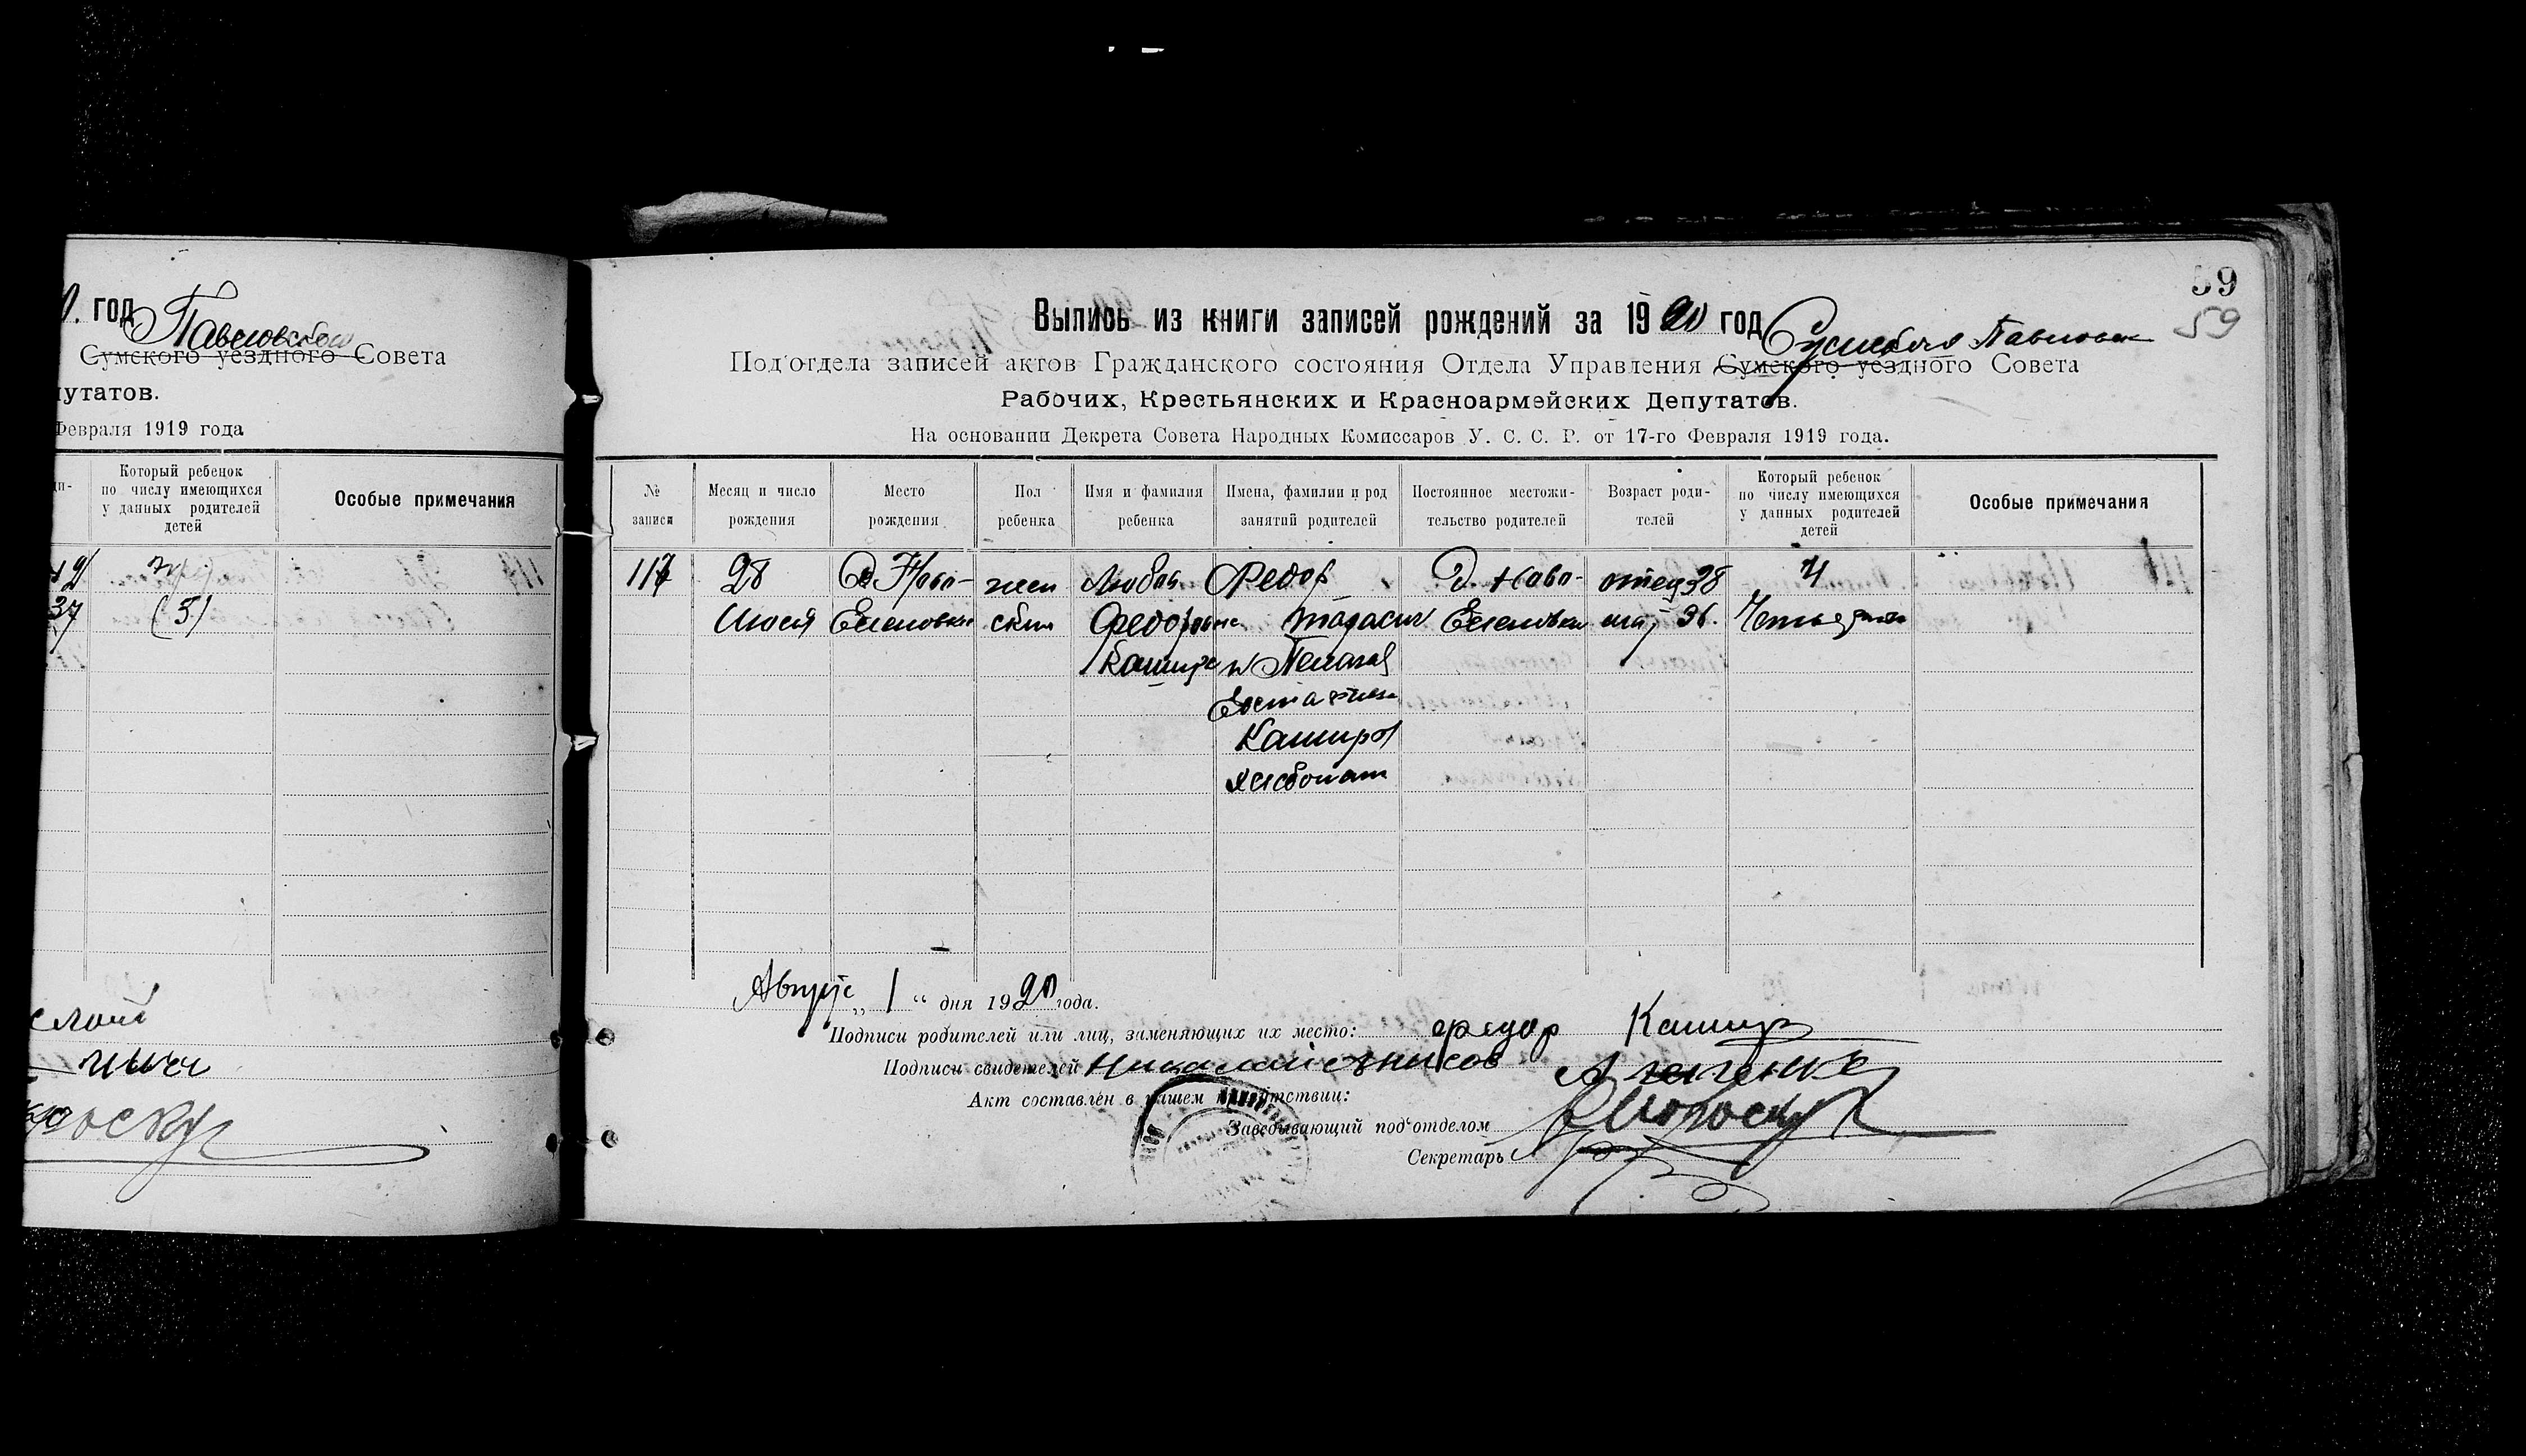 год
Павловской
Сумского уездного Совета
путатов.
Февраля 1919 года
Который ребенок
по числу имеющихся
у данных родителей
детей
Особые примечания
37
(3)
59
59
Выпись из книги записей рождений за 1920 год
Под'отдела записей актов Гражданского состояния Отдела Управления Сумского уездного Совета
Рабочих, Крестьянских и Красноармейских Депутатов.
На основании Декрета Совета Народных Комиссаров У. С. С. Р. от 17-го Февраля 1919 года.
№ записи
Месяц и число рождения
Место рождения
Пол ребенка
Имя и фамилия ребенка
Имена, фамилии и род занятий родителей
Постоянное местожительство родителей
Возраст родителей
Который ребенок по числу имеющихся у данных родителей детей
Особые примечания
117 28 Д Ново- жен Любовь Федор Д. Ново- отец 38 4
Июля Еленовка ский Федоровна Тарасич Еленовка мат 36.
Кашира и Пелагея
Кашира
хлебопаш
Август „ 1 “ дня 1920 года.
Подписи родителей или лиц, заменяющих их место: Федор Кашир
Подписи свидетелей
Акт составлен в нашем присутствии:
Заведывающий под'отделом
Секретарь